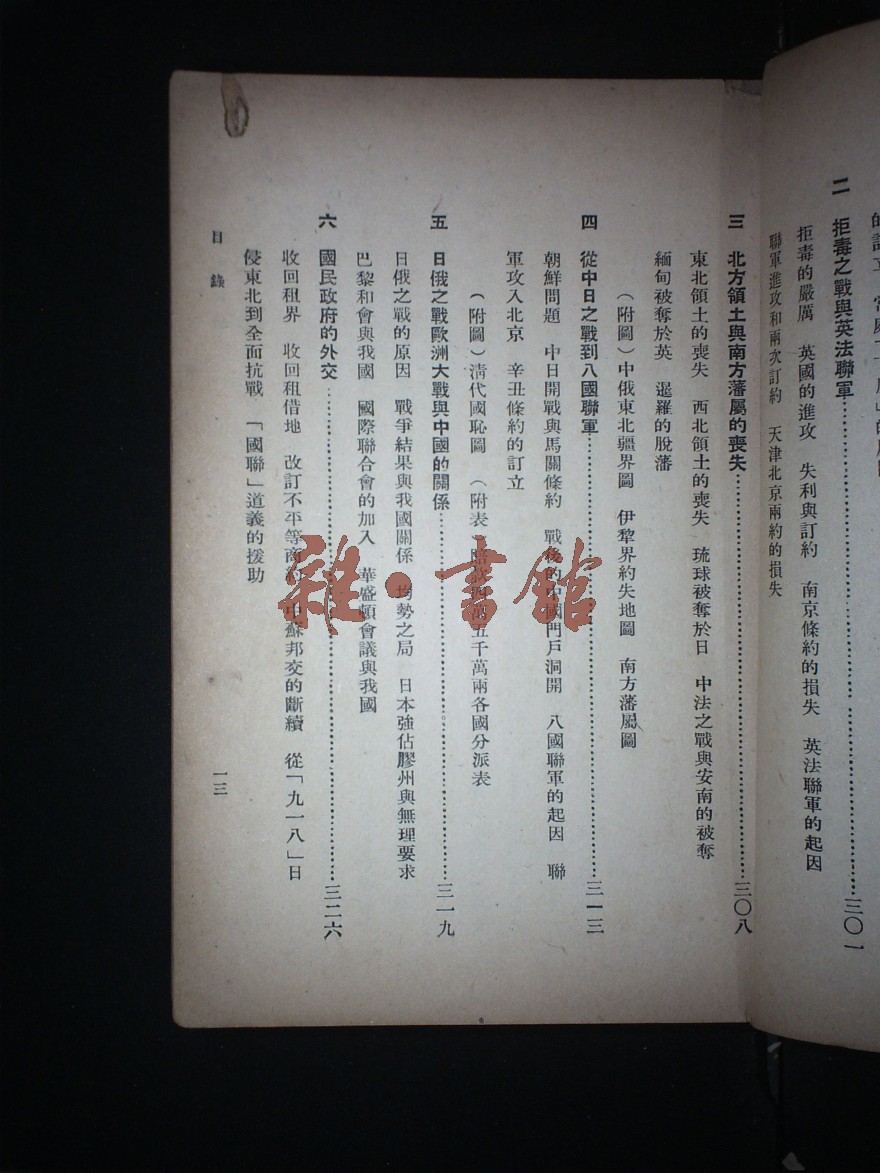 二　拒毒之戰與英法聯軍……三〇一
拒毒的嚴厲　英國的進攻　失利與訂約　南京條約的損失　英法聯軍的起因
聯軍進攻和兩次訂約　天津北京兩約的損失
三　北方領土與南方藩屬的喪失……三〇八
東北領土的喪失　西北領土的喪失　琉球被奪於日　中法之戰與安南的被奪
緬甸被奪於英　暹羅的脫藩
（附圖）中俄東北疆界圖　伊犂界約失地圖　南方藩屬圖
四　從中日之戰到八國聯軍……三一三
朝鮮問題　中日開戰與馬關條約　戰後的中國門戶洞開　八國聯軍的起因　聯
軍攻入北京　辛丑條約的訂立
（附圖）清代國恥圖　（附表）賠款四萬五千萬兩各國分派表
五　日俄之戰歐洲大戰與中國的關係……三一九
日俄之戰的原因　戰爭結果與我國關係　均勢之局　日本強佔膠州與無理要求
巴黎和會與我國　國際聯合會的加入　華盛頓會議與我國
六　國民政府的外交……三二六
收回租界　收回租借地　改訂不平等商約　中蘇邦交的斷續　從「九一八」日
侵東北到全面抗戰　「國聯」道義的援助
目錄　一三
雜·書館